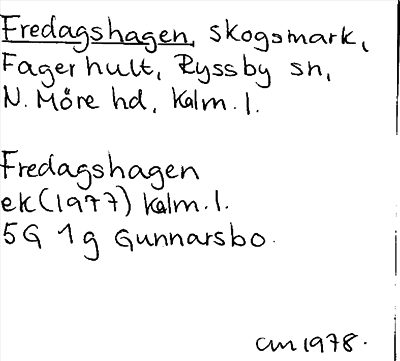 Fredagshagen, skogsmark,
Fagerhult, Ryssby sn,
N. Möre hd, Kalm. l.
Fredagshagen
ek (1977) Kalm. l.
5G 1g Gunnarsbo.
CM 1978.